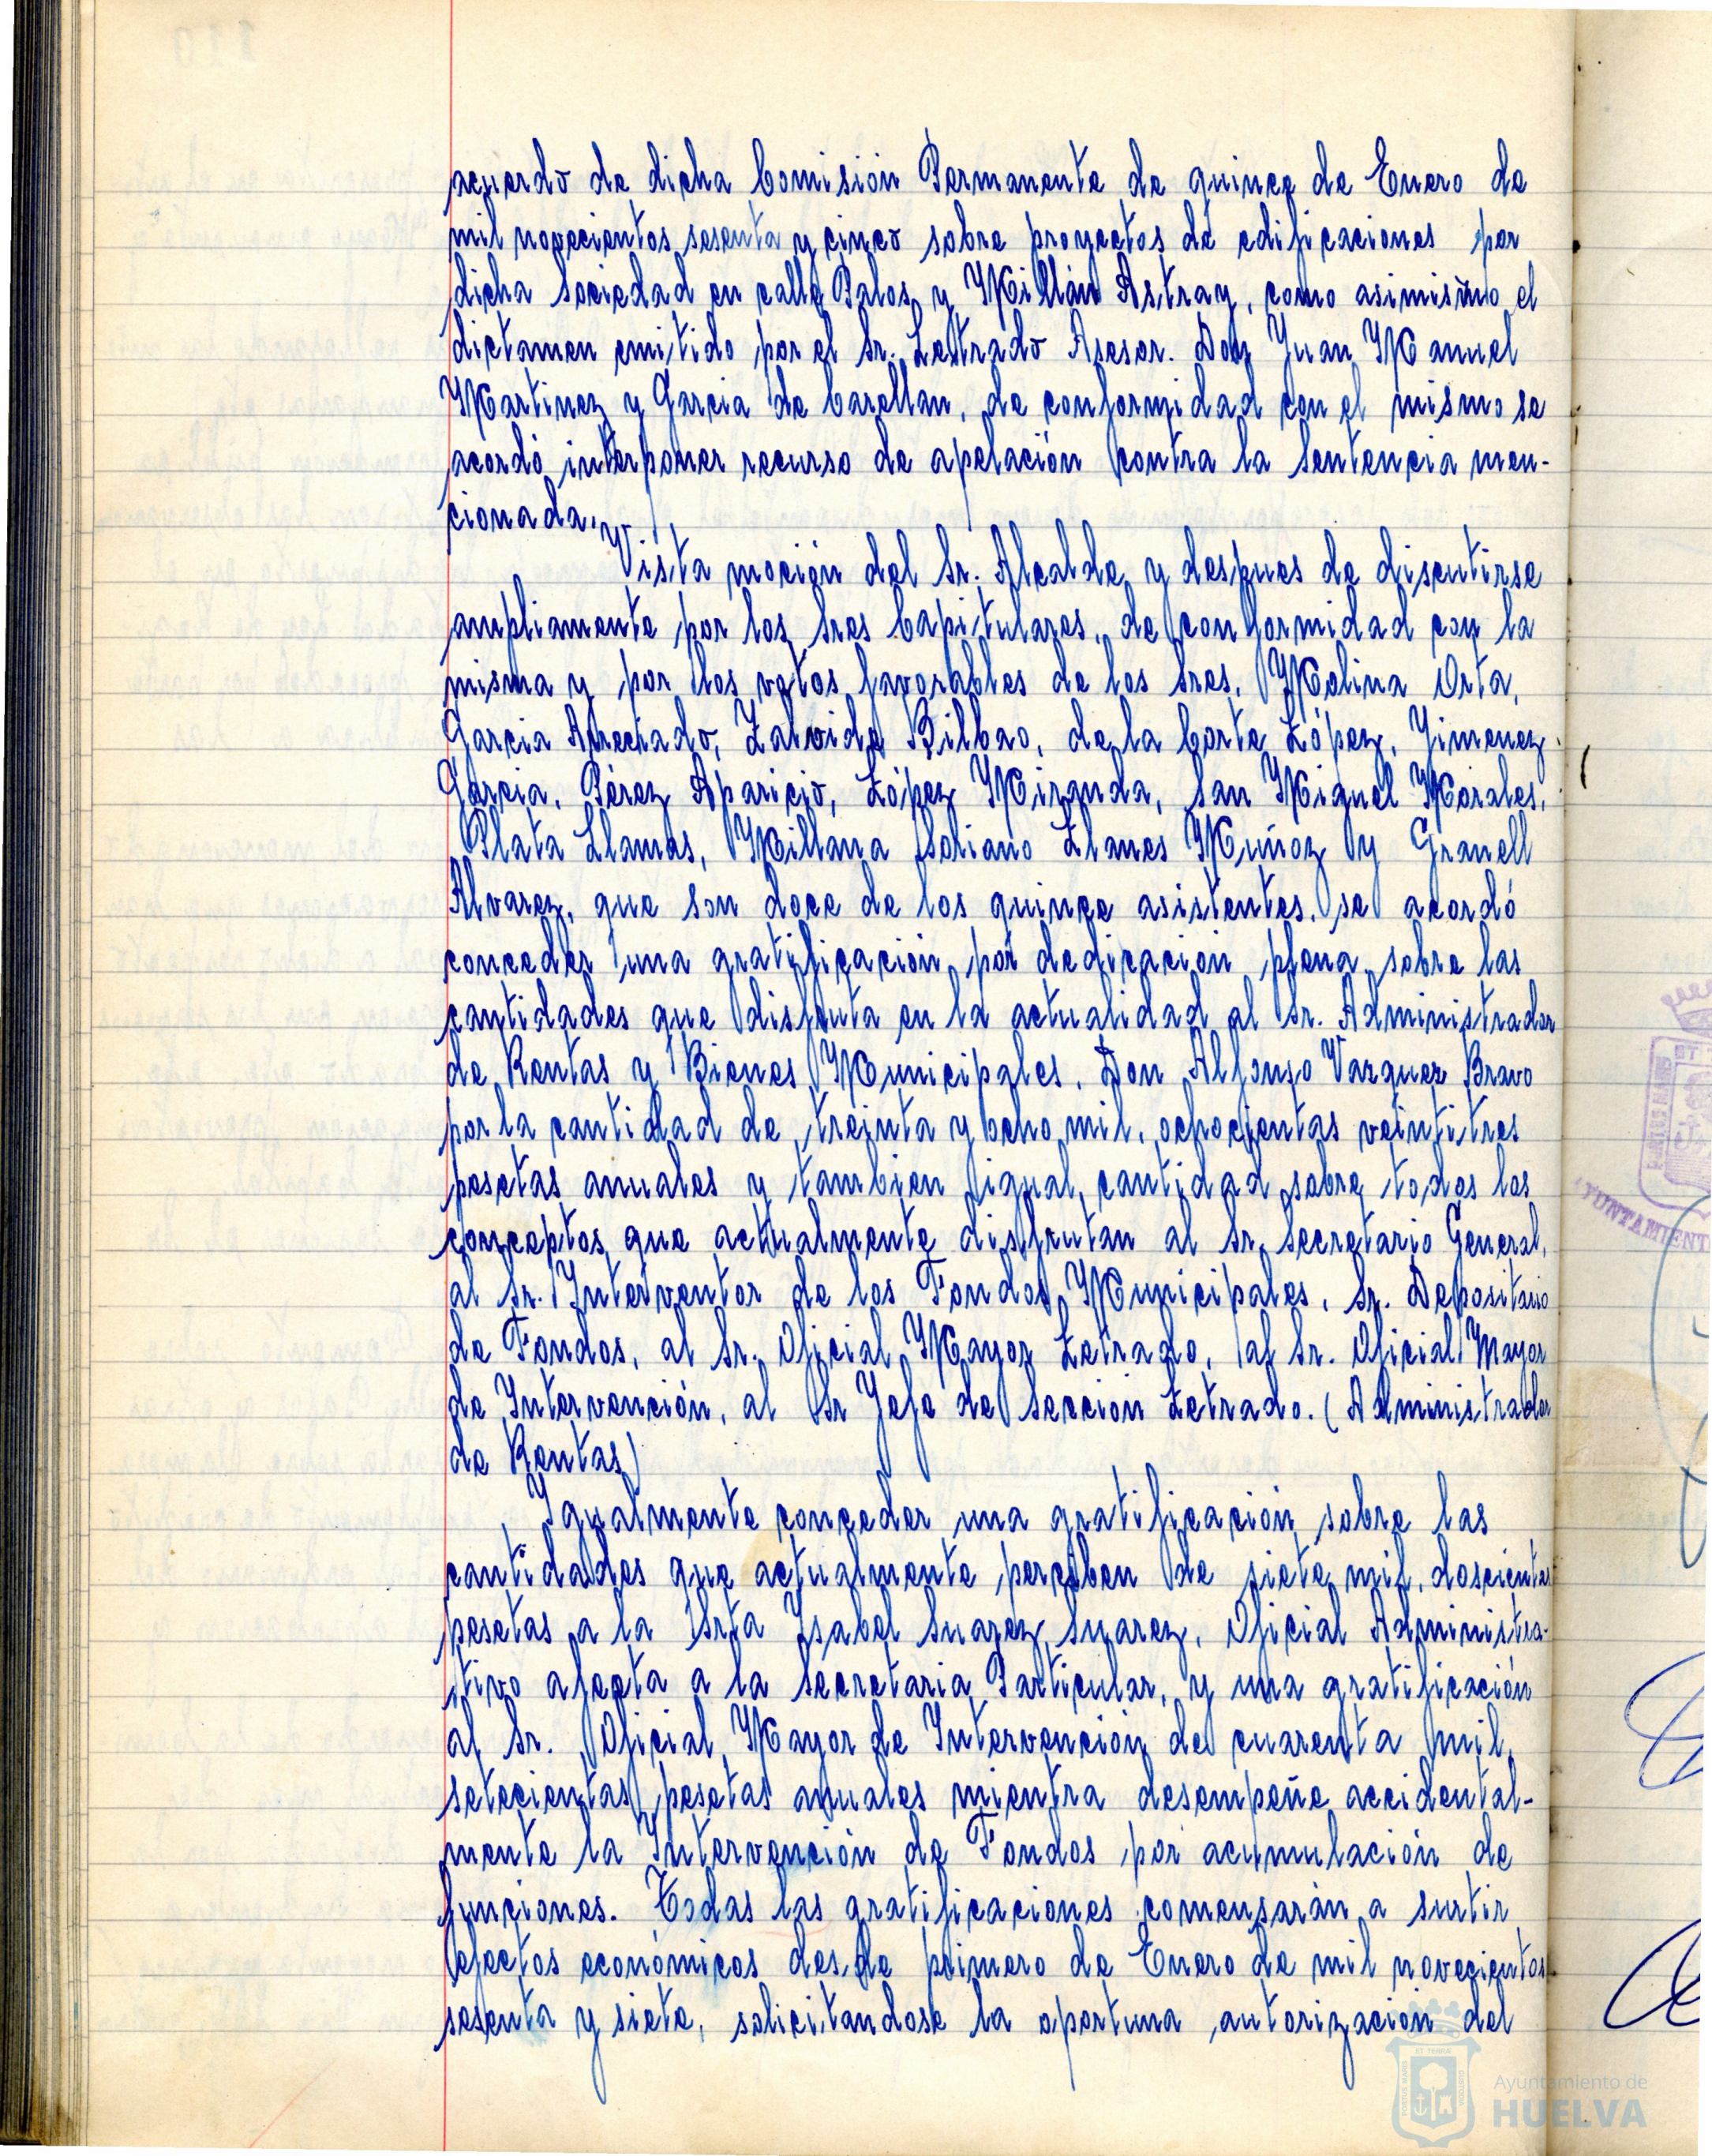 acuerdo de dicha Comisión Permanente de quince de Enero de
mil novecientos sesenta y cinco sobre proyectos de edificaciones por
dicha Sociedad en calle Palos y Millán Astray, como asimismo el
dictamen emitido por el Sr. Letrado Asesor. Don Juan Manuel
Martinez y Garcia de Carellan, de conformidad con el mismo se
acordó interponer recurso de apelación contra la Sentencia men-
cionada.
Vista moción del Sr. Alcalde y despues de discutirse
ampliamente por los Sres Capitulares, de conformidad con la
misma y por los votos favorables de los Sres. Molina Orta,
Garcia Arrechado, Zalvide Bilbao, de la Corte López, Jimenez
Garcia, Pérez Aparicio, López Miranda, San Miguel Morales,
Plata Llamas, Millana Soriano Llanes Muñoz y Granell
Alvarez, que son doce de los quince asistentes, se acordó
conceder una gratificación por dedicación plena sobre las
cantidades que disfruta en la actualidad al Sr. Administrador
de Rentas y Bienes Municipales, Don Alfonso Vazquez Bravo
por la cantidad de treinta y ocho mil, ochocientas veintitres
pesetas anuales y tambien igual cantidad sobre todos los
conceptos que actualmente disfrutan al Sr. Secretario General,
al Sr. Interventor de los Fondos Municipales, Sr. Depositario
de Fondos, al Sr. Oficial Mayor Letrado, al Sr. Oficial Mayor
de Intervención, al Sr Jefe de Sección Letrado. (Administrador
de Rentas)
Igualmente conceder una gratificación sobre las
cantidades que actualmente perciben de siete mil, doscientas
pesetas a la Srta Isabel Suarez Suarez, Oficial Administra-
tivo afecta a la Secretaria Particular, y una gratificación
al Sr. Oficial Mayor de Intervención de cuarenta mil
setecientas pesetas anuales mientra desempeñe accidental-
mente la Intervención de Fondos por acumulación de
funciones. Todas las gratificaciones comensarán a surtir
efectos económicos desde primero de Enero de mil novecientos
sesenta y siete, solicitandose la oportuna autorización del
Ayuntamiento de
HUELVA